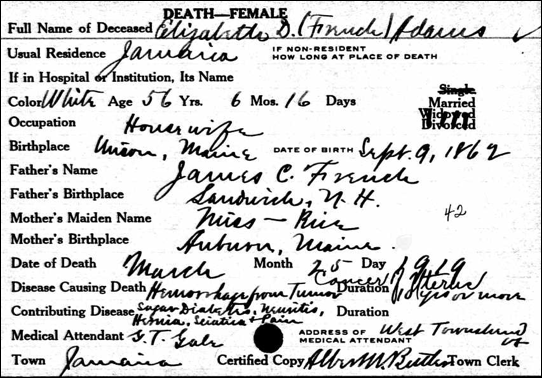 DEATH—FEMALE
Full Name of Deceased Elizabeth D. (French) Adams
Usual Residence Jamaica IF NON-RESIDENT HOW LONG AT PLACE OF DEATH
If in Hospital or Institution, Its Name
Color White Age 56 Yrs. 6 Mos. 16 Days Single Married Widowed Divorced
Occupation Housewife
Birthplace Union, Maine DATE OF BIRTH Sept. 9, 1862
Father's Name James C. French
Father's Birthplace Sandwich, N. H.
Mother's Maiden Name Miss — Rice 42
Mother's Birthplace Auburn, Maine.
Date of Death March Month 25 Day 1919
Disease Causing Death Hemorrhage from Tumor Cancer Uterus Duration yrs or more
Contributing Disease Sugar Diabetis, Neuritis, Duration
Hernia, Sciatica + Pain
Medical Attendant F. T. Gale ADDRESS OF MEDICAL ATTENDANT West Townshend Vt
Town Jamaica Certified Copy Albert M. Butler Town Clerk